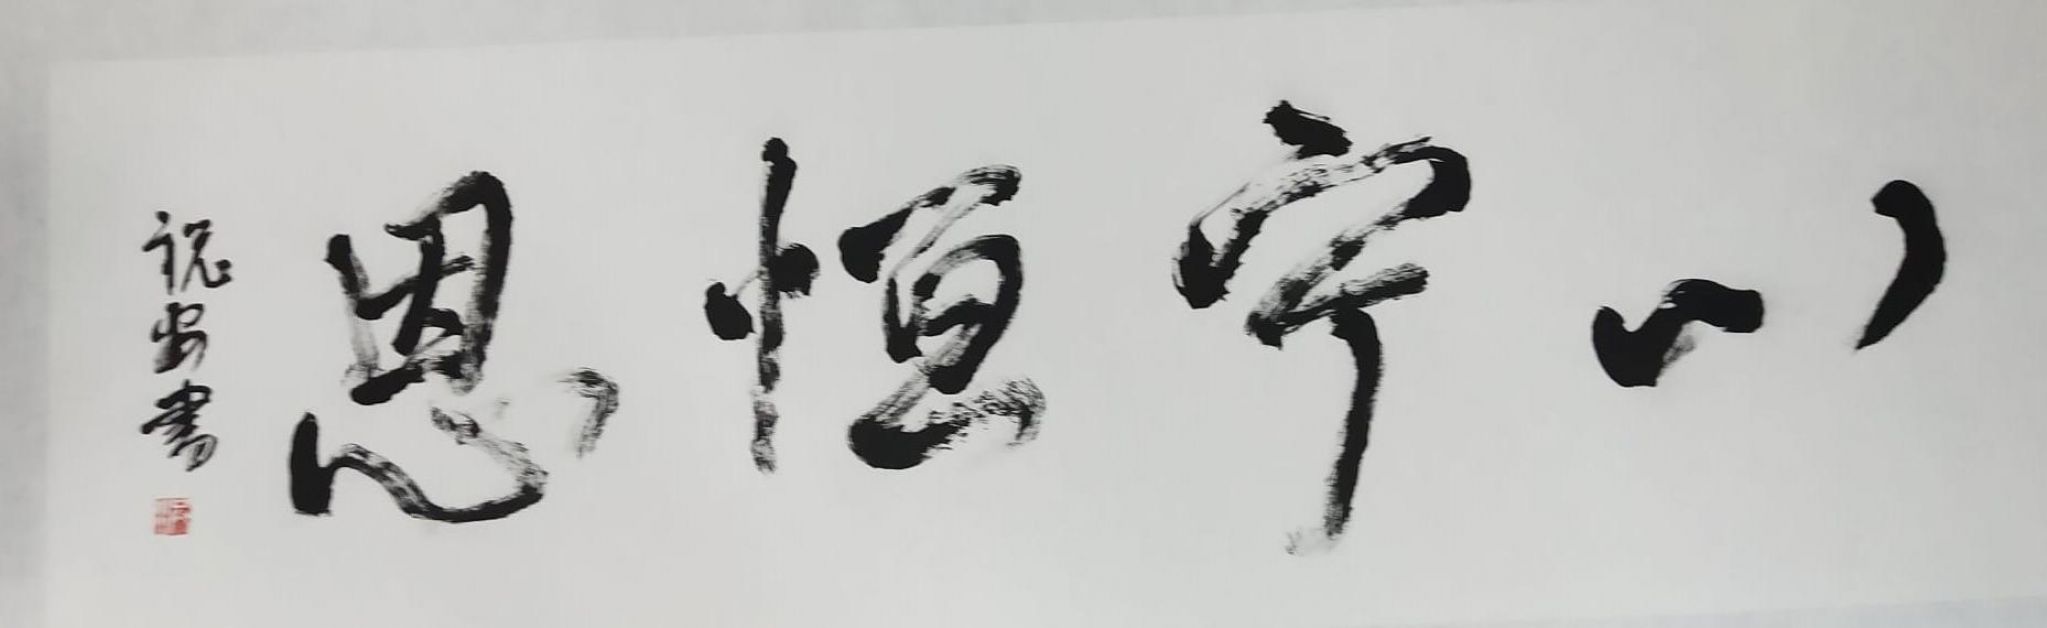 心宇恒恩
祝安書